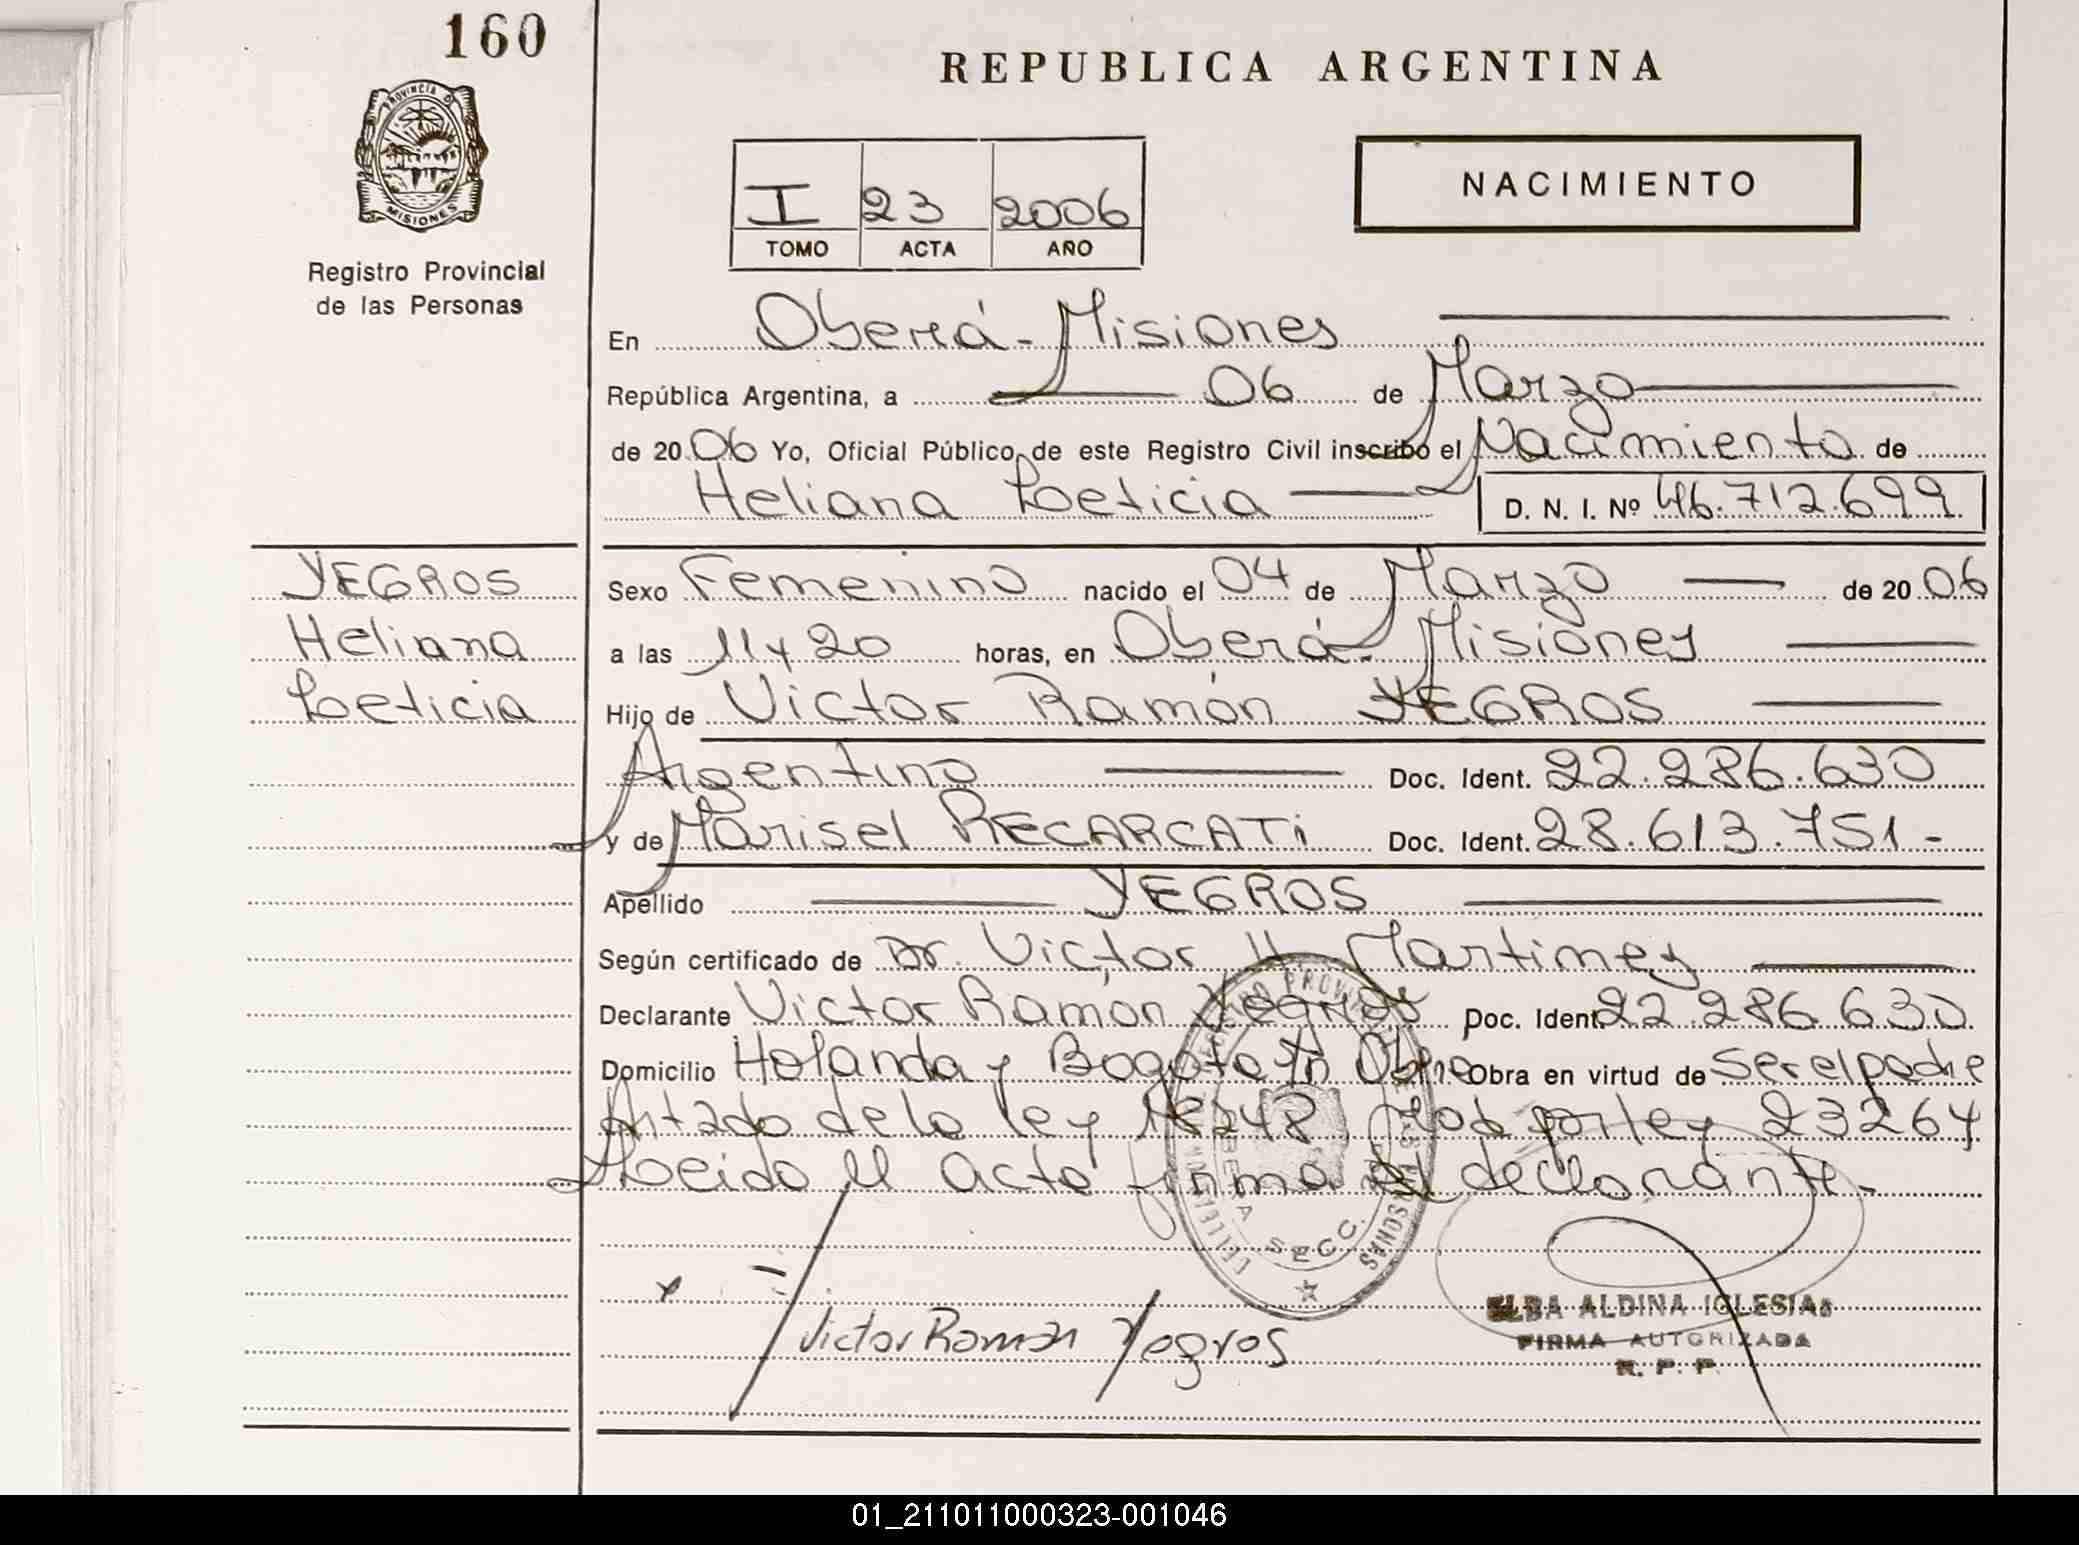 160
REPUBLICA ARGENTINA
PROVINCIA DE
MISIONES
Registro Provincial
de las Personas
I 23 2006
TOMO ACTA AÑO
NACIMIENTO
En Oberá - Misiones
República Argentina, a 06 de Marzo
de 2006 Yo, Oficial Público de este Registro Civil inscribo el Nacimiento de
Heliana Leticia D. N. I. Nº 46.712.699
YEGROS
Heliana
Leticia
Sexo Femenino nacido el 04 de Marzo de 2006
a las 11 y 20 horas, en Oberá - Misiones
Hijo de Victor Ramón YEGROS
Argentino Doc. Ident. 22.286.630
y de Marisel RECARCATi Doc. Ident. 28.613.751-
Apellido YEGROS
Según certificado de Dr. Victor H. Martinez
Declarante Victor Ramon Yegros Doc. Ident. 22.286.630
Domicilio Holanda y Bogota Obra en virtud de ser el padre
de la ley 18248 Mod por ley 23264
Leido el acta firma el declarante.-
SECC.
x Victor Ramon Yegros
ELBA ALDINA IGLESIAS
FIRMA AUTORIZADA
R. P. P.
01_211011000323-001046